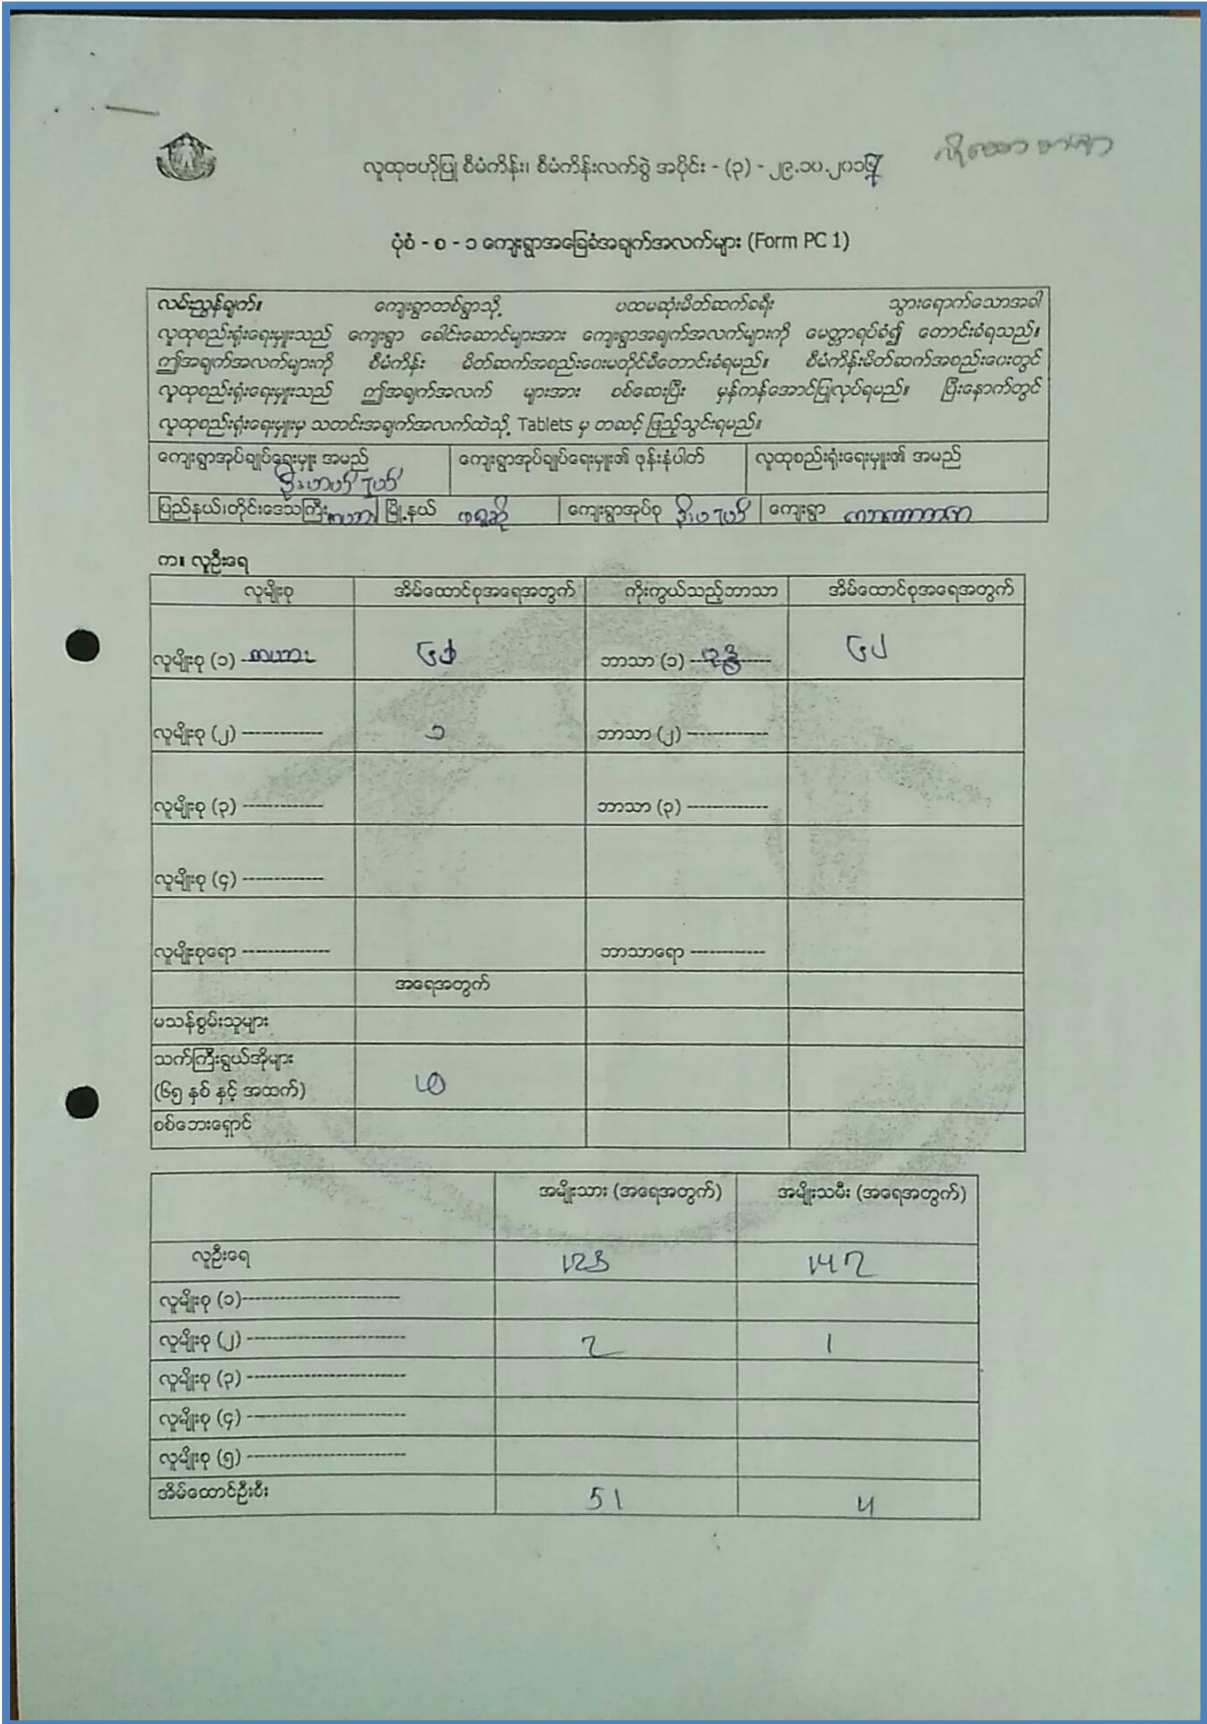 လူထုဗဟိုပြု စီမံကိန်း၊ စီမံကိန်းလက်စွဲ အပိုင်း - (၃) - ၂၉.၁၀.၂၀၁
ပုံစံ - စ - ၁ ကျေးရွာအခြေခံအချက်အလက်များ (Form PC 1)
လမ်းညွှန်ချက်။ ကျေးရွာတစ်ရွာသို့ ပထမဆုံးမိတ်ဆက်ခရီး သွားရောက်သောအခါ
လူထုစည်းရုံးရေးမှူးသည် ကျေးရွာ ခေါင်းဆောင်များအား ကျေးရွာအချက်အလက်များကို မေတ္တာရပ်ခံ၍ တောင်းခံရသည်။
ဤအချက်အလက်များကို စီမံကိန်း မိတ်ဆက်အစည်းဝေးမတိုင်မီတောင်းခံရမည်။ စီမံကိန်းမိတ်ဆက်အစည်းဝေးတွင်
လူထုစည်းရုံးရေးမှူးသည် ဤအချက်အလက် များအား စစ်ဆေးပြီး မှန်ကန်အောင်ပြုလုပ်ရမည်။ ပြီးနောက်တွင်
လူထုစည်းရုံးရေးမှူးမှ သတင်းအချက်အလက်ထဲသို့ Tablets မှ တဆင့် ဖြည့်သွင်းရမည်။
ကျေးရွာအုပ်ချုပ်ရေးမှူး အမည် ကျေးရွာအုပ်ချုပ်ရေးမှူး၏ ဖုန်းနံပါတ် လူထုစည်းရုံးရေးမှူး၏ အမည်
ပြည်နယ်၊တိုင်းဒေသကြီး ကယား မြို့နယ် ဖရူဆို ကျေးရွာအုပ်စု ကျေးရွာ
က။ လူဦးရေ
လူမျိုးစု အိမ်ထောင်စုအရေအတွက် ကိုးကွယ်သည့်ဘာသာ အိမ်ထောင်စုအရေအတွက်
လူမျိုးစု (၁) ကယား ဘာသာ (၁) ၆၂
လူမျိုးစု (၂) ------------- ၁ ဘာသာ (၂) -------------
လူမျိုးစု (၃) ------------- ဘာသာ (၃) -------------
လူမျိုးစု (၄) -------------
လူမျိုးစုရော -------------- ဘာသာရော ------------
အရေအတွက်
မသန်စွမ်းသူများ
သက်ကြီးရွယ်အိုများ
(၆၅ နှစ် နှင့် အထက်) ၂၆
စစ်ဘေးရှောင်
အမျိုးသား (အရေအတွက်) အမျိုးသမီး (အရေအတွက်)
လူဦးရေ 123 147
လူမျိုးစု (၁)-------------------------
လူမျိုးစု (၂) ------------------------- 2 1
လူမျိုးစု (၃) -------------------------
လူမျိုးစု (၄) -------------------------
လူမျိုးစု (၅) -------------------------
အိမ်ထောင်ဦးစီး 51 4